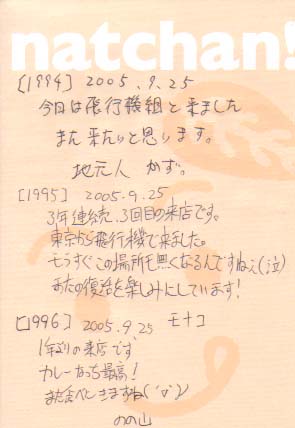 natchan!
[1994] 2005.9.25
今日は飛行機組と来ました
また来たいと思います。
地元人 かず。
[1995] 2005.9.25
3年連続、3回目の来店です。
東京から飛行機で来ました。
もうすぐこの場所も無くなるんですね(泣)
またの復活を楽しみにしています!
[1996] 2005.9.25 モナコ
1年ぶりの来店です
カレーなっち最高!
また食べにきますね(´▽`)
のの山